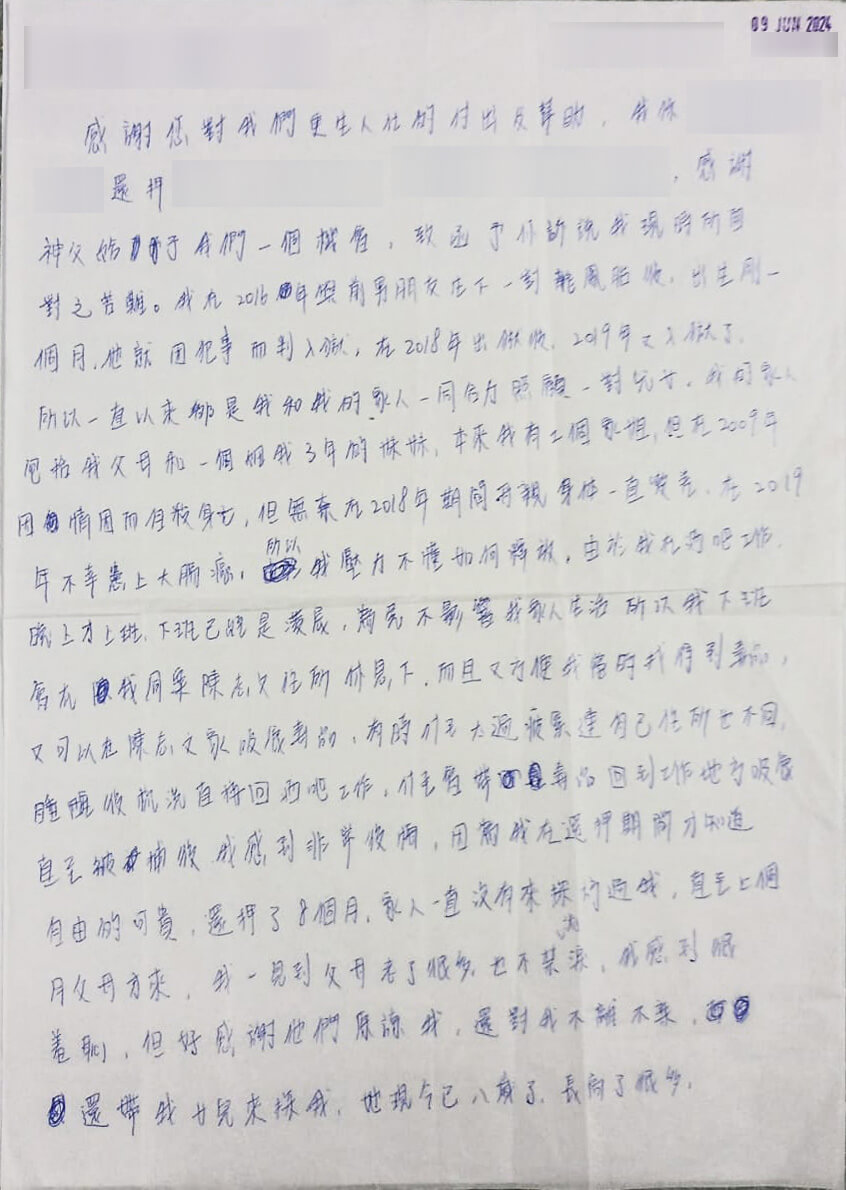 09 JUN 2024
感謝您對我們更生人仕的付出及幫助，我係
還押 ，感謝
神父給予我們一個機會，致函予你訴說我現時所面
對之苦難。我在2016年與前男朋友生下一對龍鳳胎後，出生剛一
個月，他就因犯事而判入獄，在2018年出獄後，2019年又入獄了，
所以一直以來都是我和我的家人一同合力照顧一對兒女，我的家人
包括我父母和一個細我3年的妹妹，本來我有2個家姐，但在2009年
因情困而自殺身亡，但無奈在2018年期間母親身体一直變差，在2019
年不幸患上大腸癌，所以我壓力不懂如何釋放，由於我在酒吧工作，
晚上才上班，下班已經是凌晨，為免不影響我家人生活所以我下班
會去我同事陳志 住所休息下，而且又方便我當時我得到毒品，
又可以在陳志 家吸食毒品，有時什至太過疲累連自己住所也不回，
睡醒後 直接回酒吧工作，什至會帶毒品回到工作地方吸食
直至被捕後我感到非常後悔，因為我在還押期間才知道
自由的可貴，還押了8個月，家人一直沒有來探訪過我，直至上個
月父母方來，我一見到父母老了很多也不禁流淚，我感到很
羞恥，但好感謝他們原諒我，還對我不離不棄，
還帶我女兒來探我，她現今已八歲了，長高了很多，